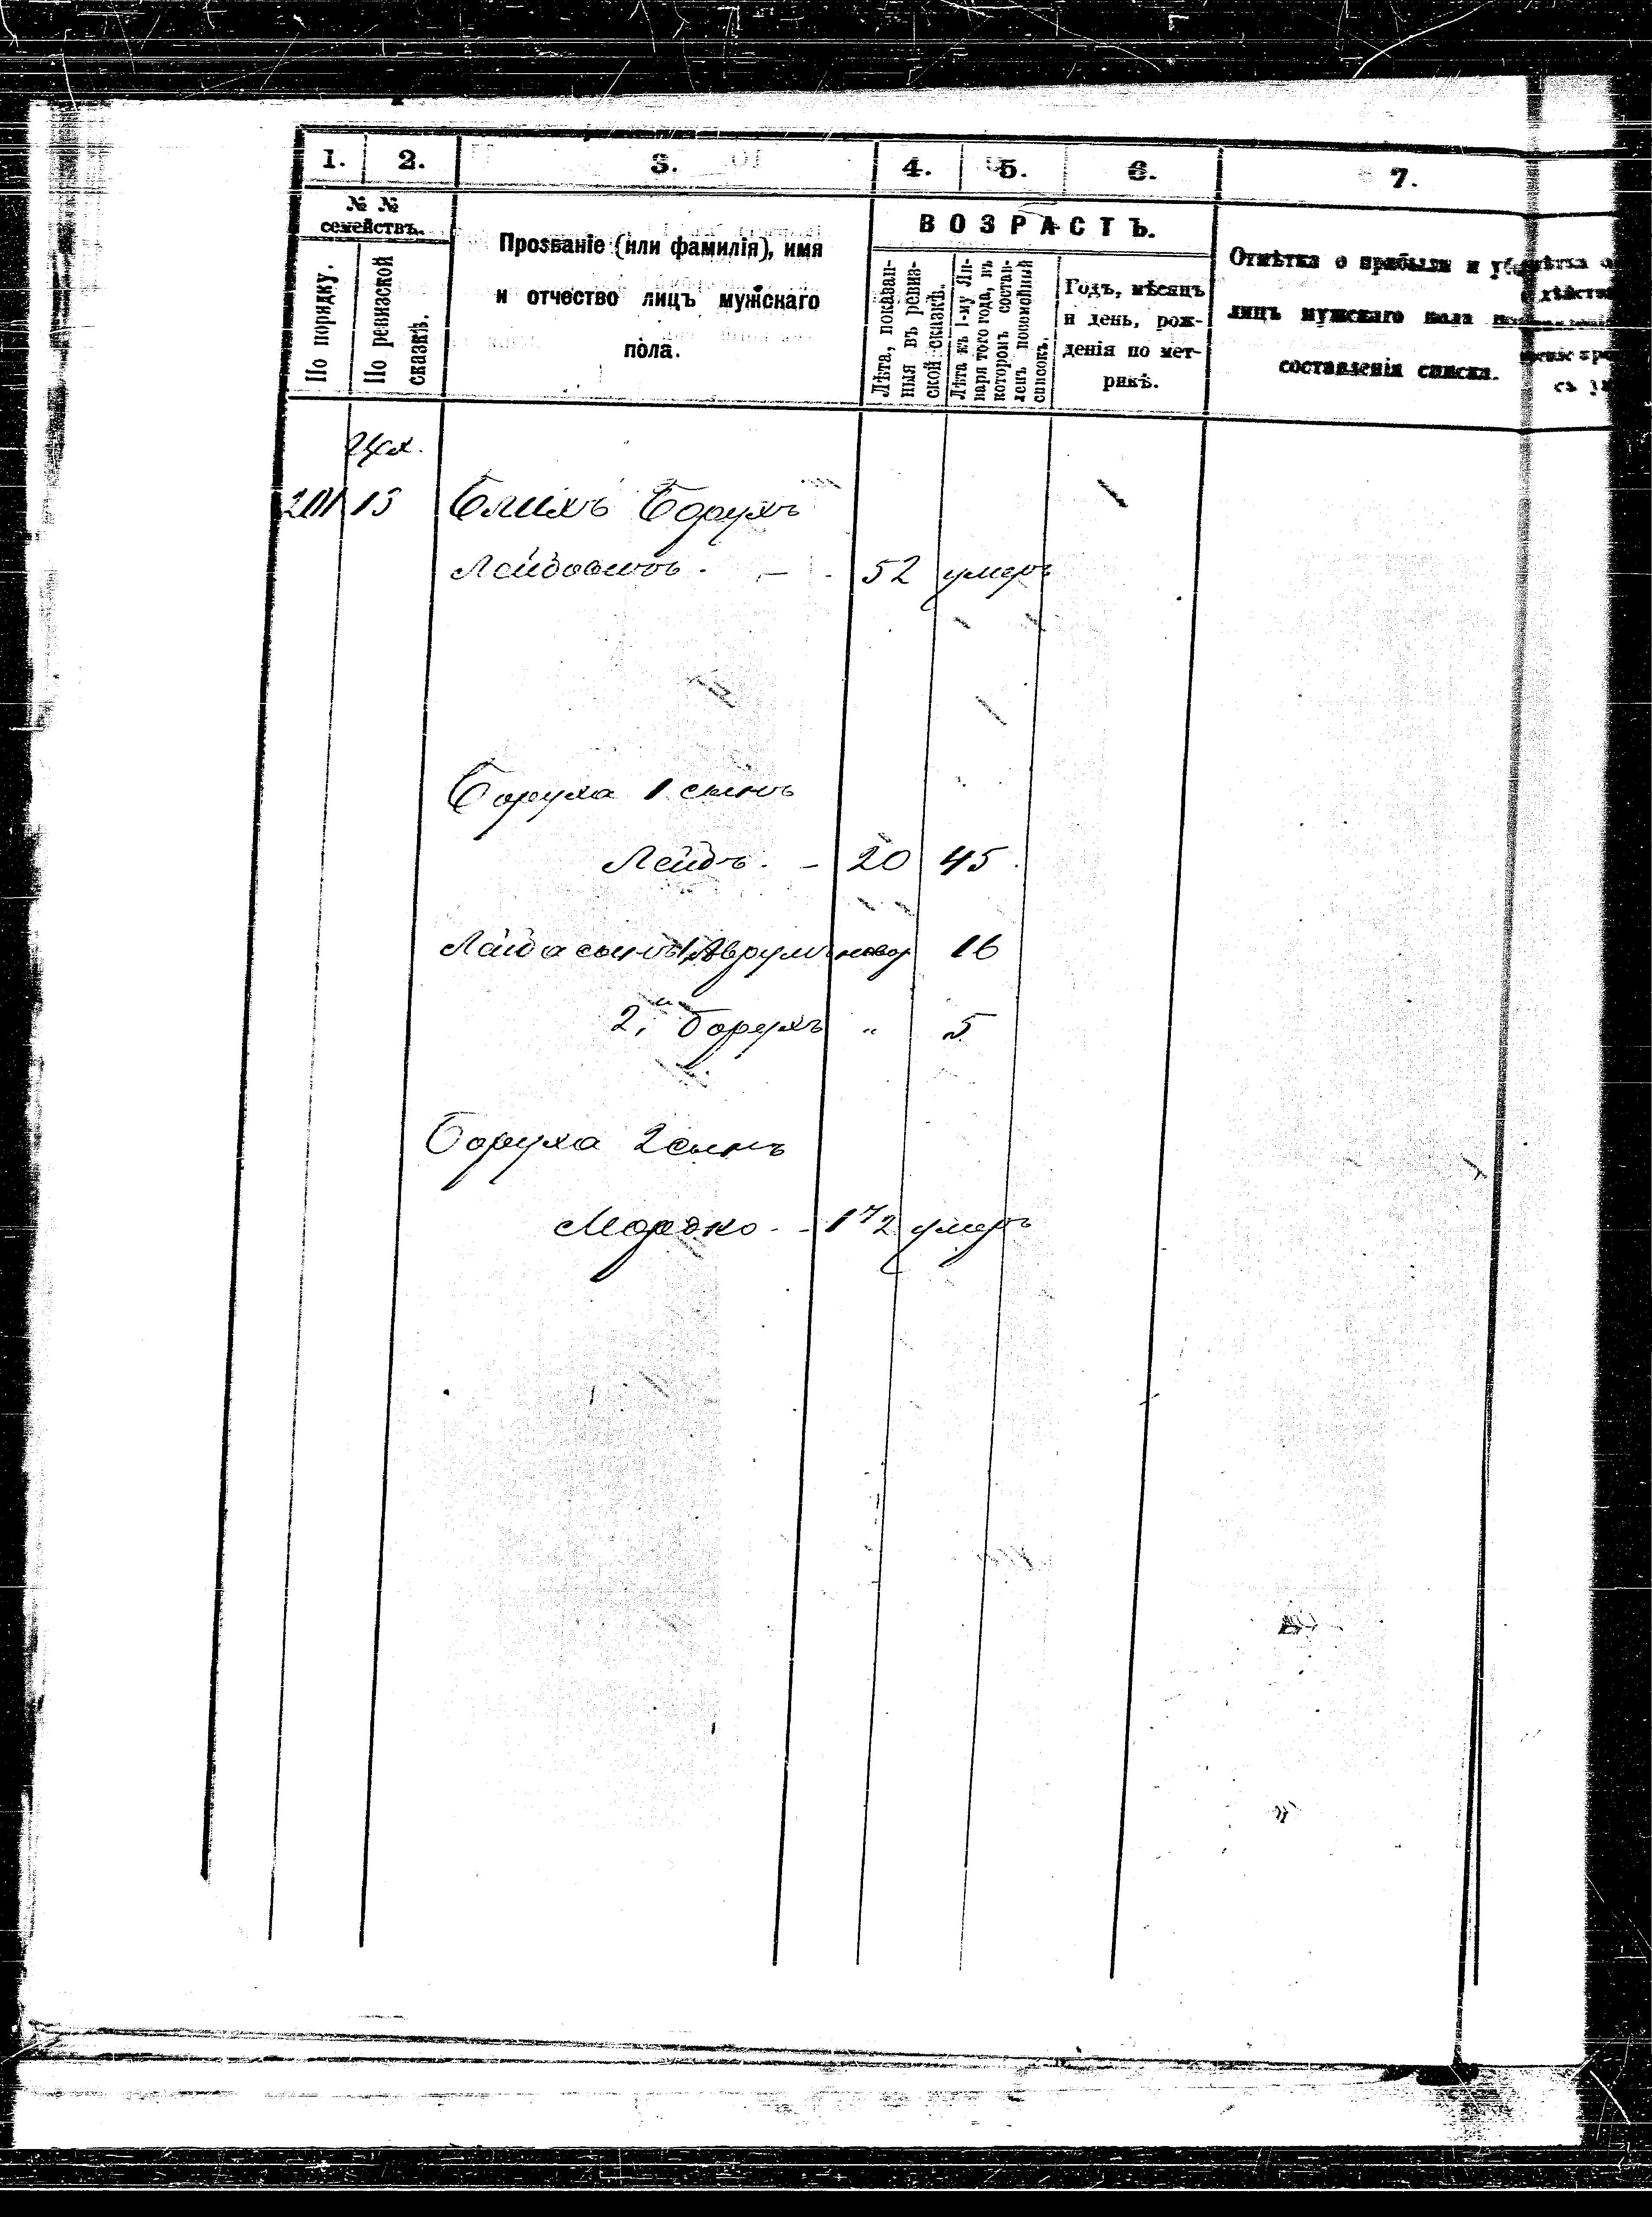 1. 2. 3. 4. 5. 6. 7.
№ №
семействъ.
По порядку.
По ревизской
сказкѣ.
Прозваніе (или фамилія), имя
и отчество лицъ мужскаго
пола.
ВОЗРАСТЪ.
Лѣта, показан-
ныя въ ревиз-
ской сказкѣ.
Лѣта къ 1-му Ян-
варя того года, въ
которомъ состав-
ленъ посемейный
списокъ.
Годъ, мѣсяцъ
и день, рож-
денія по мет-
рикѣ.
Отмѣтка о прибыли и
лицъ мужскаго пола
составленія списка.
201 13 Блихъ Борухъ
Лейбовичъ. - 52 умеръ
Боруха 1 сынъ
Лейбъ. - 20 45.
Лейба сынъ 1, Аврумъ новор 16
2, Борухъ " 5
Боруха 2 сынъ
Мордко - 1/2 умеръ